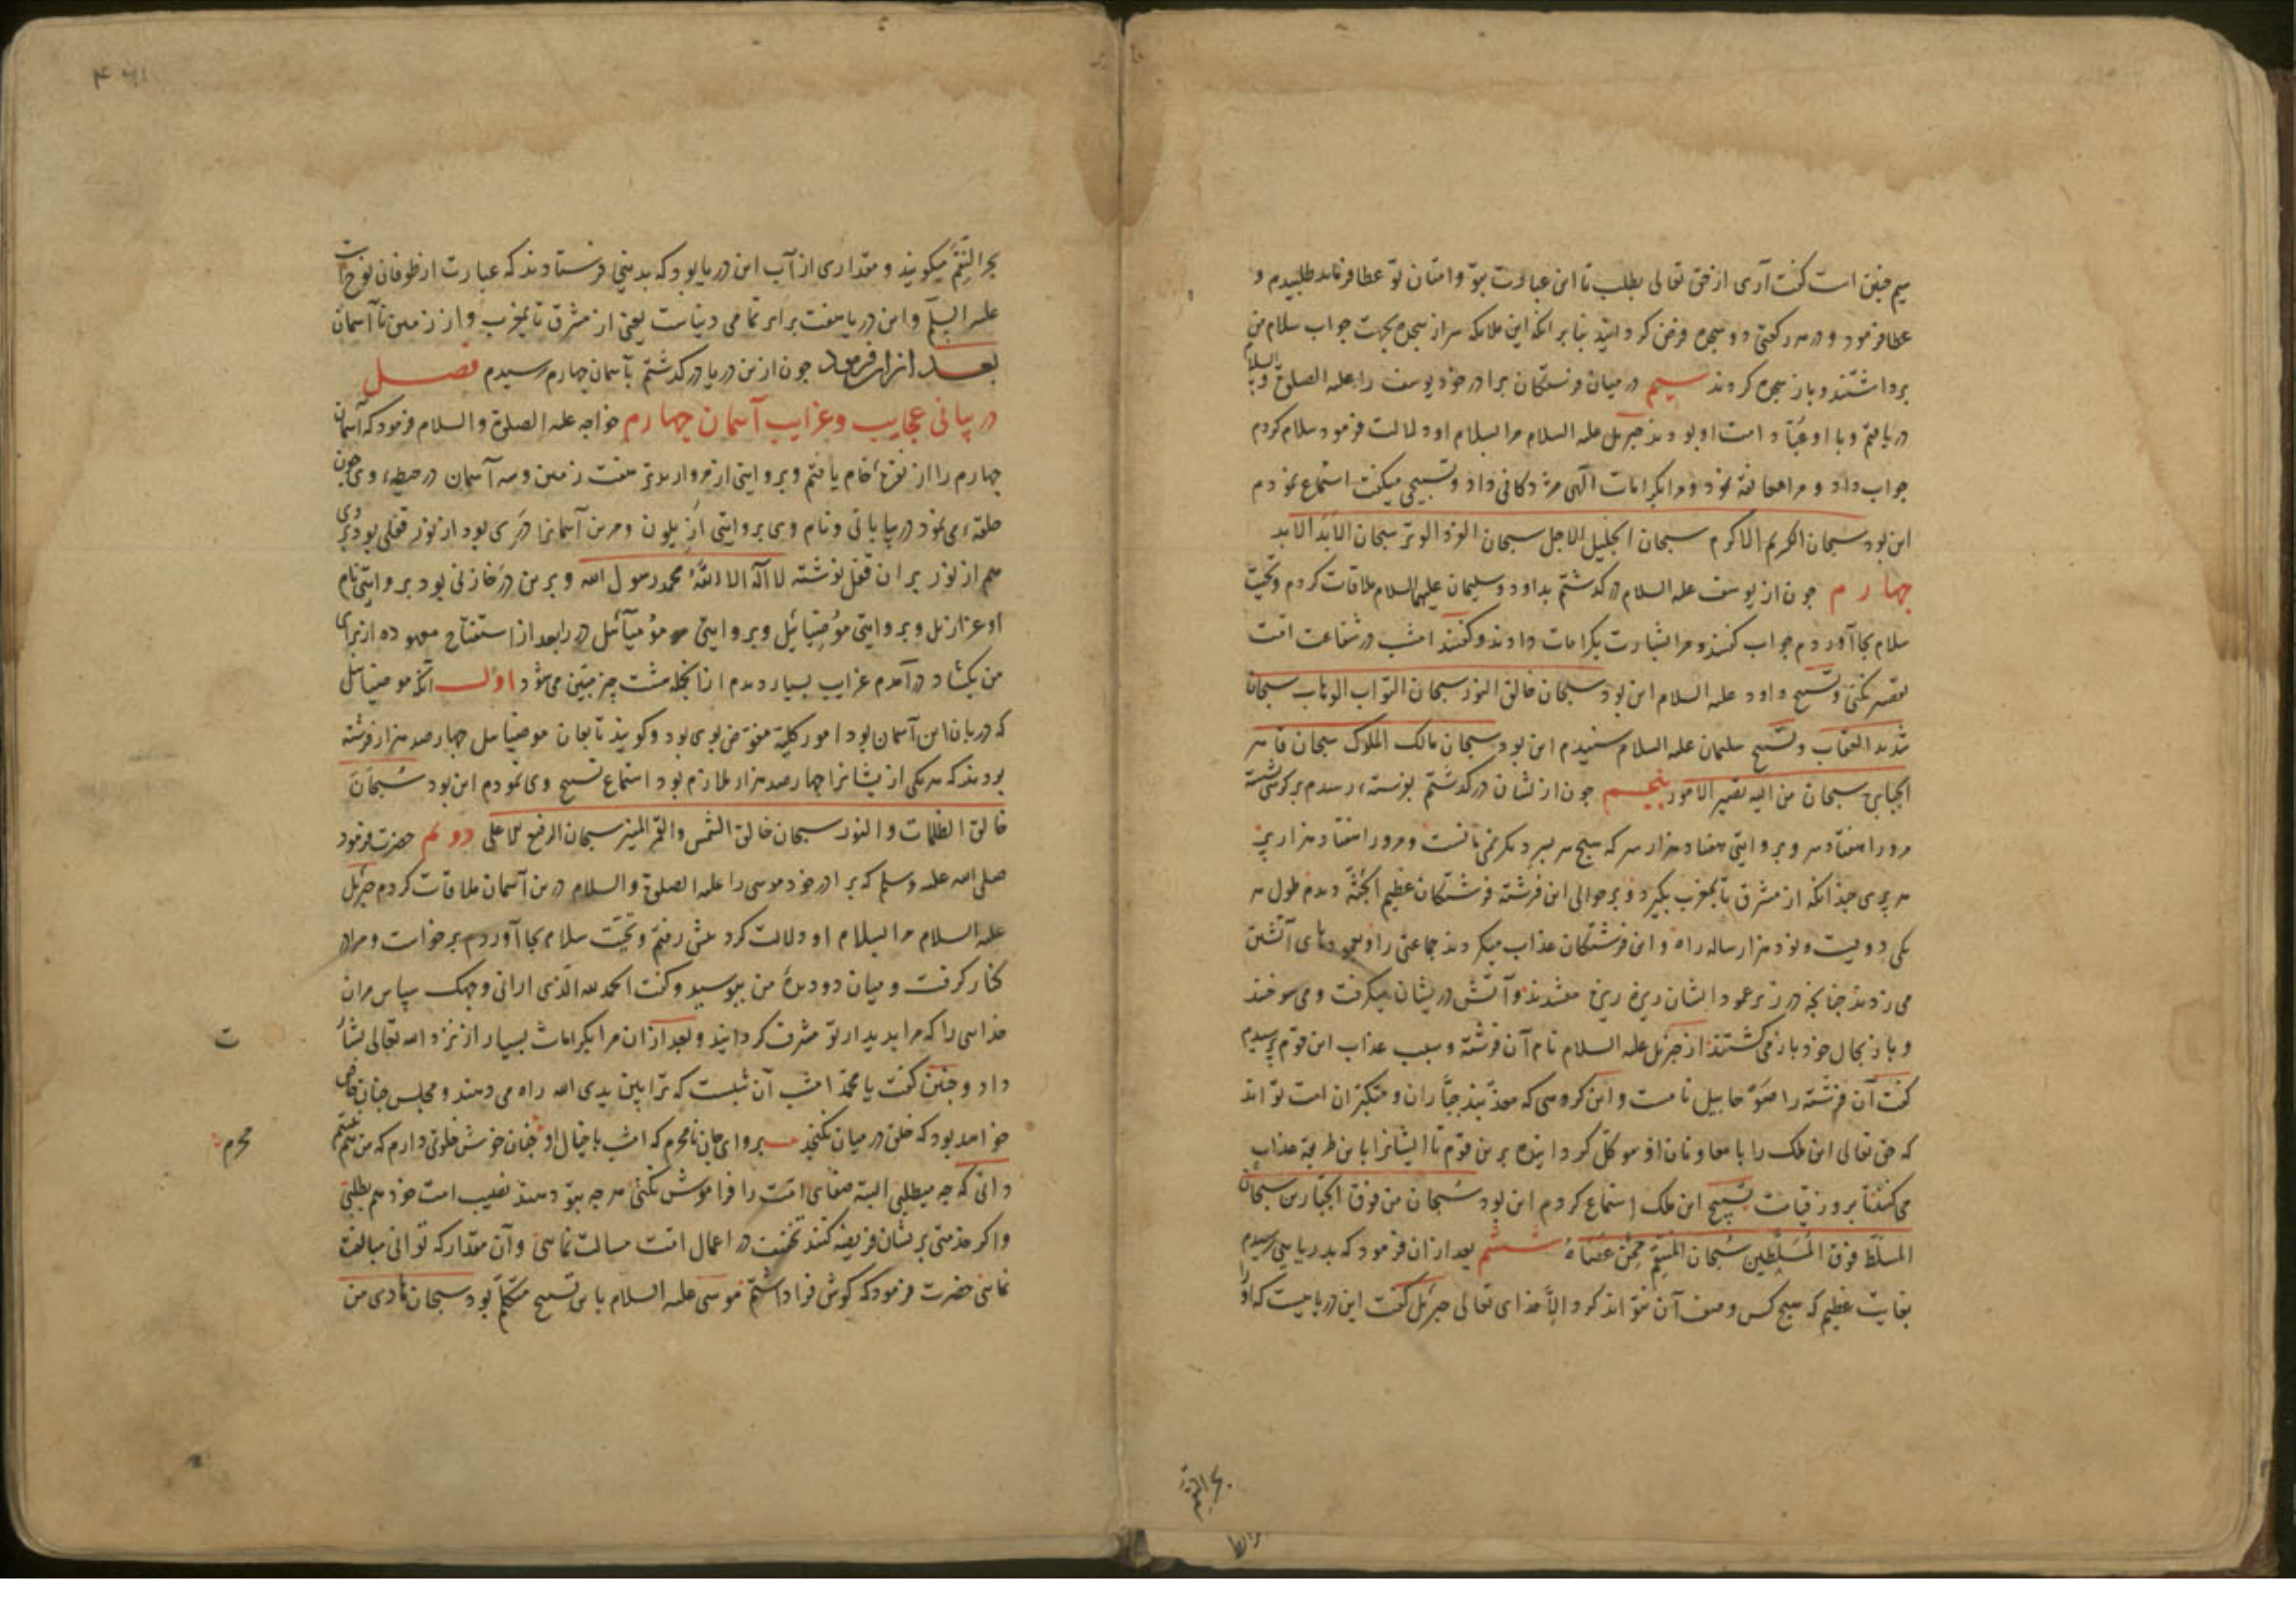 هم چنین است گفت آری از حق تعالی بطلب تا این عبادت بتو و امتان تو عطا فرماید طلبیدم و
عطا فرمود و در هر رکعتی دو سجده فرض گردانید بنابر انکه این ملایکه سر از سجده بجهت جواب سلام من
برداشتند و باز سجده کردند سیم در میان فرشتگان برادر خود یوسف را علیه الصلوة و السلام
دریافتم و با او امت او بودند جبریل علیه السلام مرا بسلام او دلالت فرمود سلام کردم
جواب داد و مرا معانقه نمود و مرا بکرامات الهی مژدکانی داد و تسبیحی میگفت استماع نمودم
این بود سبحان الکریم الاکرم سبحان الجلیل الاجل سبحان الفرد الوتر سبحان الابد الابد
چهارم چون از یوسف علیه السلام درگذشتم بداود و سلیمان علیهما السلام ملاقات کردم و تحیت
سلام بجا آوردم جواب گفتند و مرا بشارت بکرامات دادند و گفتند امشب در شفاعت امت
تقصیر نکنی و تسبیح داود علیه السلام این بود سبحان خالق النور سبحان التواب الوهاب سبحان
شدید العقاب و تسبیح سلیمان علیه السلام شنیدم این بود سبحان مالک الملوک سبحان قاهر
الجبابر سبحان من الیه تصیر الامور پنجم چون ازیشان درگذشتم بفرشته رسیدم بر کرسی نشسته
مرورا هفتاد سر و بروایتی هفتاد هزار سر که هیچ سر بسر دیگر نمی مانست و مرورا هفتاد هزار پر
هر پری چندانکه از مشرق تا بمغرب بگیرد و بر حوالی این فرشته فرشتگان عظیم الجثه دیدم طول هر
یکی دویست و نود هزار ساله راه و این فرشتگان عذاب میکردند جماعتی را و بعمودهای آتشین
می زدند چنانچه در زیر عمود ایشان ریزه ریزه میشدند و آتش دریشان میگرفت و می سوختند
و باز بحال خود باز می گشتند از جبریل علیه السلام نام آن فرشته و سبب عذاب این قوم پرسیدم
گفت آن فرشته را نامست و این گروهی که معذبند جباران و متکبران امت تو اند
که حق تعالی این ملک را با معاونان او موکل گردانیده برین قوم تا ایشانرا باین طریقه عذاب
می کنند تا بروز قیامت تسبیح این ملک استماع کردم این بود سبحان من فوق الجبارین سبحان
المسلط فوق المسلطین سبحان المنتقم ممن عصاه ششم بعد از ان فرمود که بدریایی رسیدم
بغایت عظیم که هیچ کس وصف آن نتواند کرد الا خدای تعالی جبریل گفت این دریاییست که او را
بحر النقم
بحر النقم میگویند و مقداری از آب این دریا بود که بدنیی فرستادند که عبارت از طوفان نوح است
علیه السلم و این دریا هفت برابر تمامی دنیاست یعنی از مشرق تا بمغرب و از زمین تا آسمان
بعد ازان فرمود چون ازین دریا درگذشتم بآسمان چهارم رسیدم فصل
در بیانی عجایب و غرایب آسمان چهارم خواجه علیه الصلوة و السلام فرمود که آسمان
چهارم را از نقره خام یافتم و بروایتی از مروارید هفت زمین و سه آسمان در حیطه وی چون
حلقه ی نمود در بیابانی و نام وی بروایتی ازیلون و مرین آسمانرا دری بود از نور قفلی بود بر وی
هم از نور بر ان قفل نوشته لا اله الا الله محمد رسول الله و برین در خازنی بود بروایتی نام
او عزازیل و بروایتی موضیائیل و بروایتی مؤمیآئیل در را بعد از استفتاح معهوده از برای
من بگشاد درآمدم غرایب بسیار دیدم ازانجمله هشت چیز مبین می شود اول آنکه موضیائیل
که دربان این آسمان بود امور کلیه مفوض بوی بود و گویند تابعان موضیائیل چهارصد هزار فرشته
بودند که هر یکی ازیشانرا چهارصد هزار ملازم بود استماع تسبیح وی نمودم این بود سبحان
خالق الظلمات و النور سبحان خالق الشمس و القمر المنیر سبحان الرفیع الاعلی دوم حضرت فرمود
صلی الله علیه و سلم که برادر خود موسی را علیه الصلوة و السلام درین آسمان ملاقات کردم جبریل
علیه السلام مرا بسلام او دلالت کرد پیش رفتم و تحیت سلام بجا آوردم برخواست و مرا در
کنار گرفت و میان دو دیده من ببوسید و گفت الحمد لله الذی ارانی وجهک سپاس مران
خدایی را که مرا بدیدار تو مشرف گردانید و بعد ازان مرا بکرامات بسیار از نزد الله تعالی بشارت
داد و چنین گفت یا محمد امشب آن شبست که ترا بین یدی الله راه می دهند و مجلس چنان خاص
خواهد بود که خلق در میان نگنجد برو ای جان نامحرم که امشب با خیال او چنان خوش خلوتی دارم که من هم نیستم محرم
دانی که چه میطلبی البته ضعفای امت را فراموش نکنی هر چه بتو دهند نصیب امت خود هم بطلبی
و اگر خدمتی بریشان فریضه کنند تخفیف در اعمال امت مسالت نمایی و آن مقدار که توانی مبالغت
نمایی حضرت فرمود که گوش فرا داشتم موسی علیه السلام باین تسبیح متکلم بود سبحان هادی من